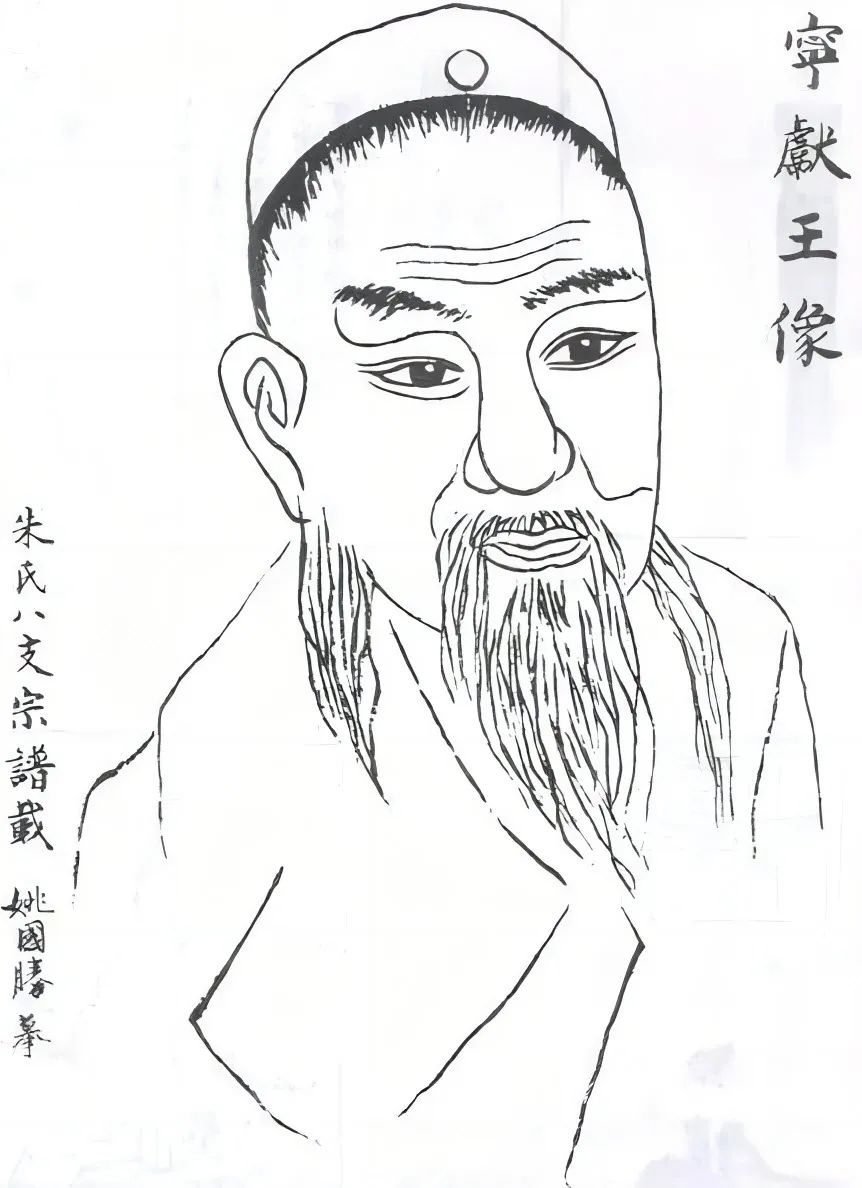 寧獻王像
朱氏八支宗譜載 姚國勝摹